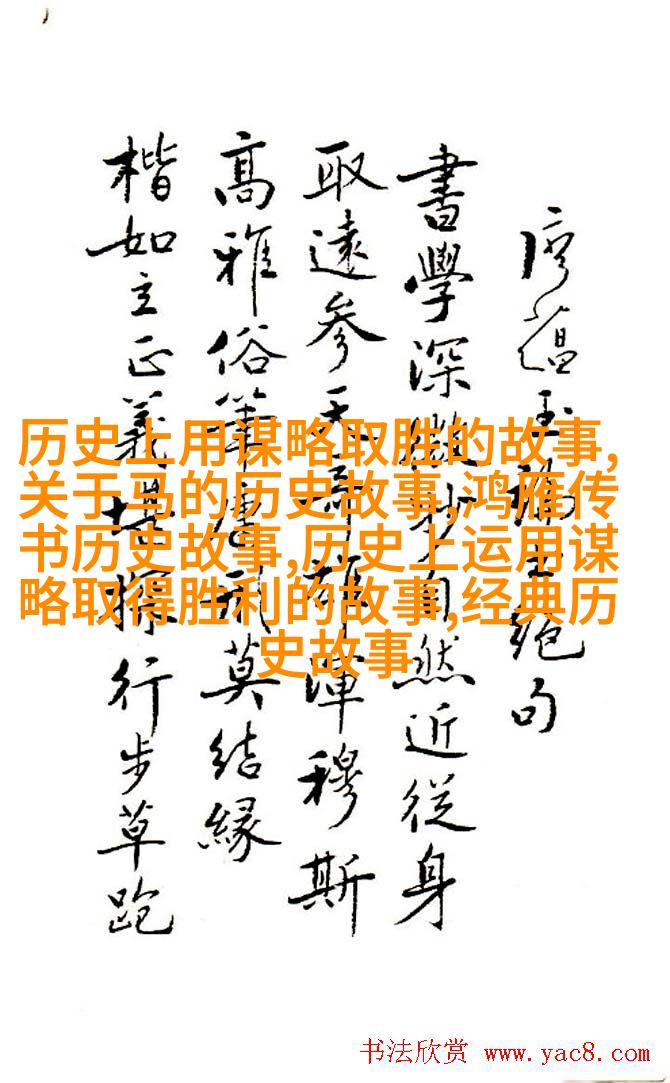 廖蘊玉論書絕句
書學深微妙自然近從身
取遠參天渾穆斯
高雅俗筆莫結緣
楷如立正義堪探行步草跑
历史上用谋略取胜的故事,
关于马的历史故事,鸿雁传
书历史故事,历史上运用谋
略取得胜利的故事,经典历
史故事
书法欣赏 www.yac8.com